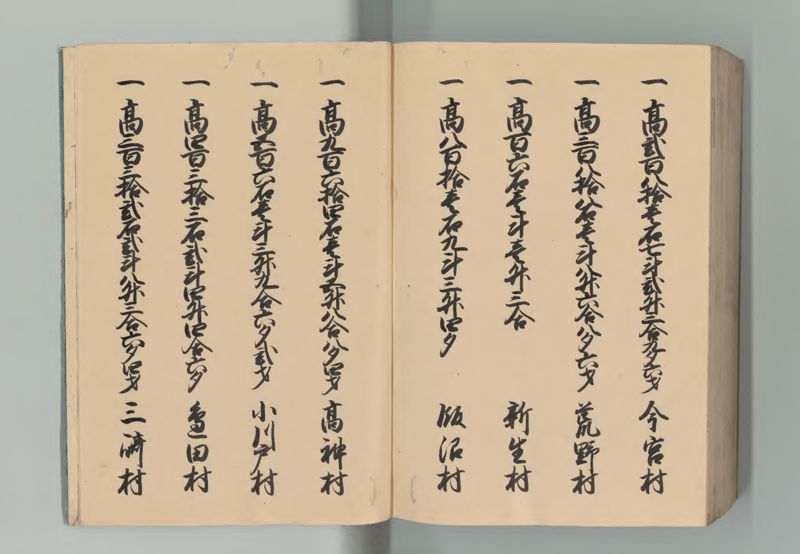 一 高弐百八拾壱石七斗弐升三合九夕六才 今宮村
一 高三百八拾八石壱斗八升六合八夕六才 荒野村
一 高百六石壱斗壱升三合 新生村
一 高八百拾壱石九斗三升四夕 飯沼村
一 高九百六拾四石壱斗五升八合八夕四才 高神村
一 高五百六石壱斗三升九合六夕弐才 小川戸村
一 高四百三拾三石弐斗四升四合六夕 邉田村
一 高三百三拾弐石弐斗八升三合六夕四才 三崎村